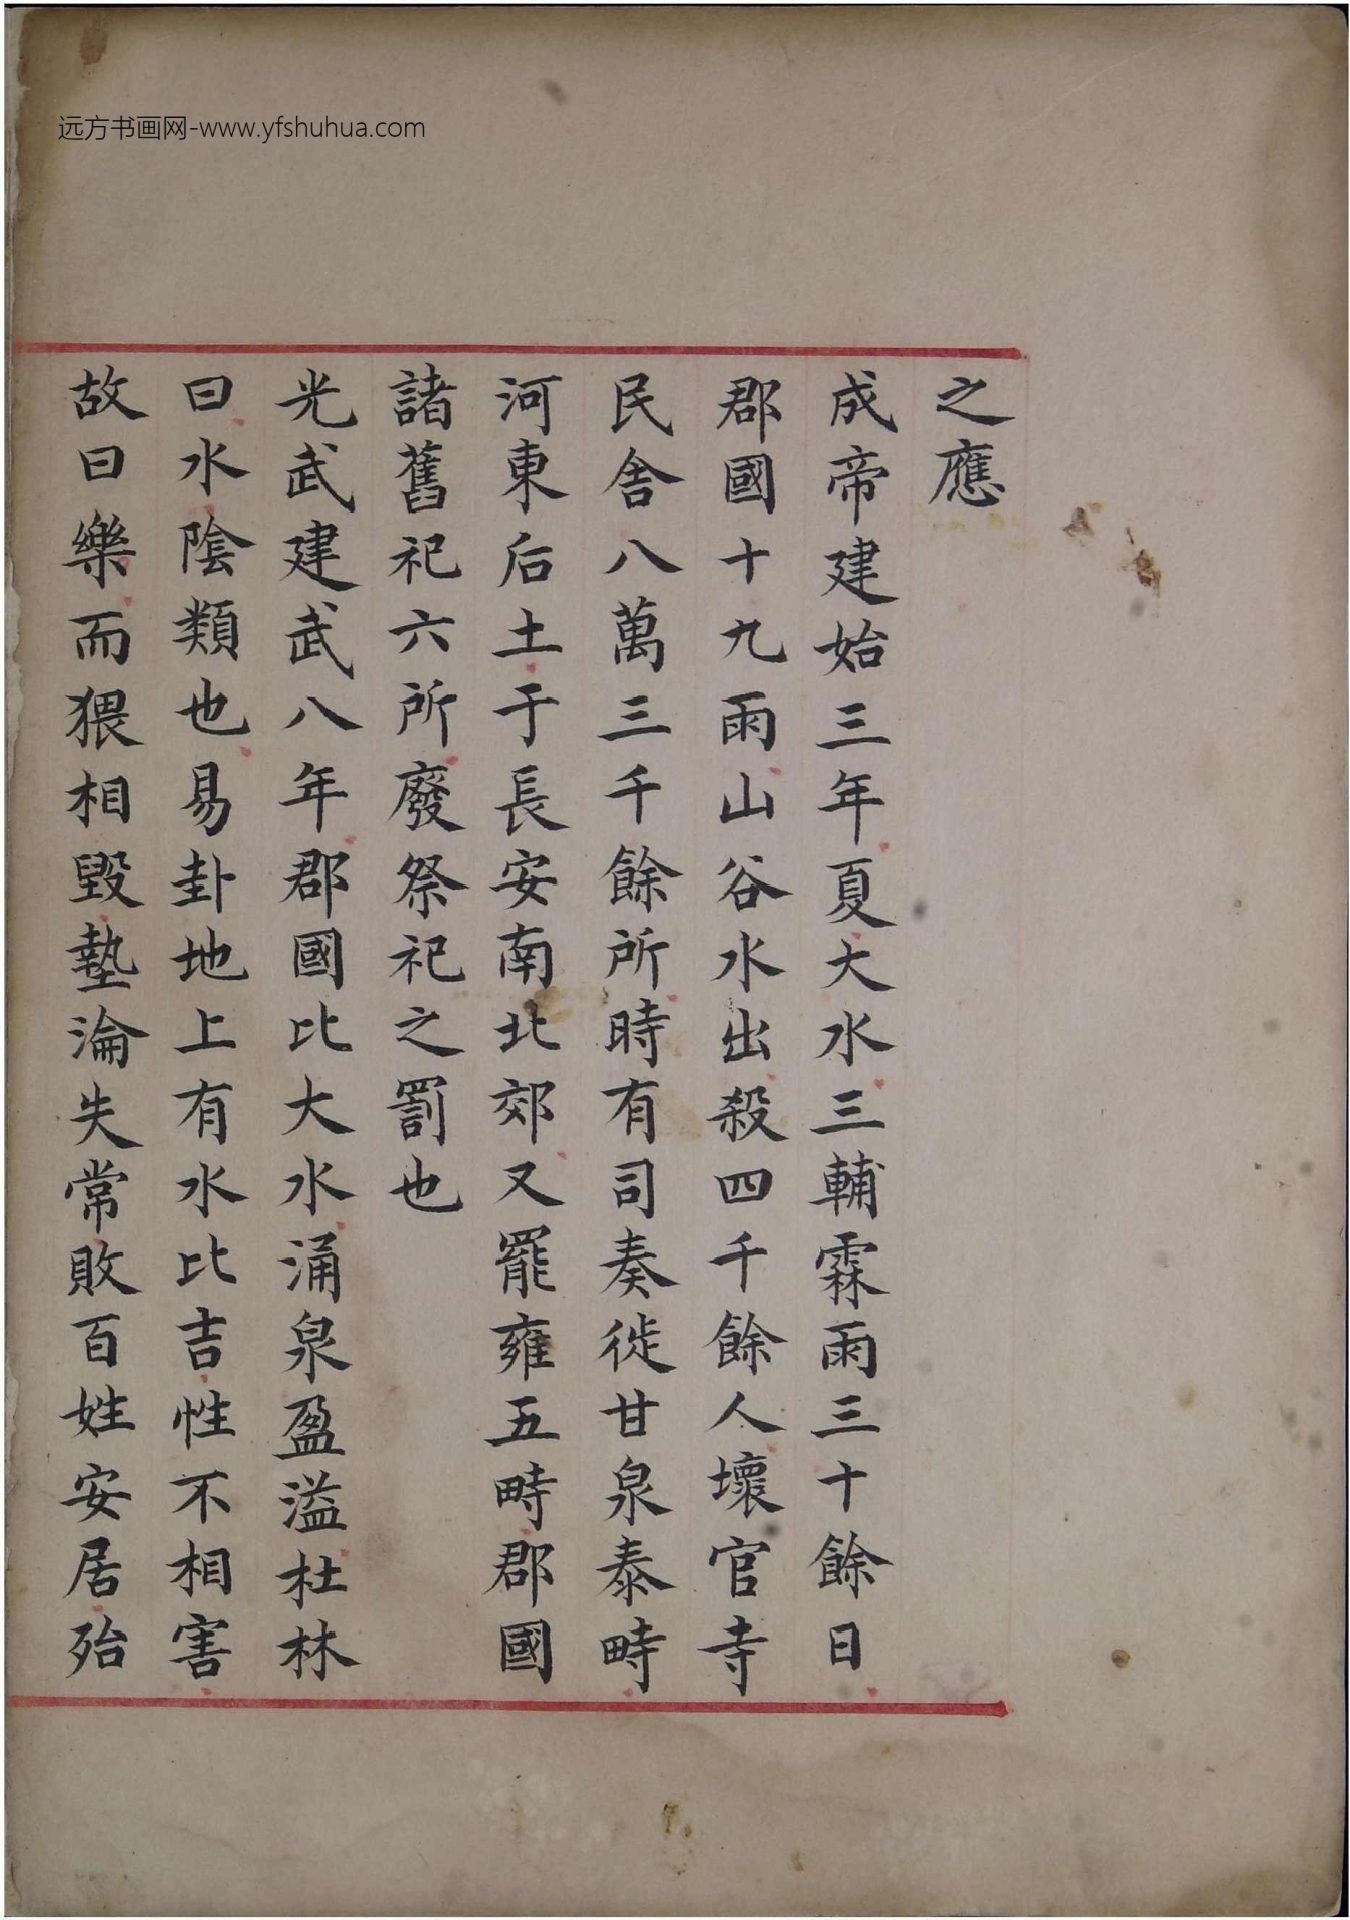 远方书画网-www.yfshuhua.com
之應
成帝建始三年夏大水三輔霖雨三十餘日
郡國十九雨山谷水出殺四千餘人壞官寺
民舍八萬三千餘所時有司奏徙甘泉泰畤
河東后土于長安南北郊又罷雍五畤郡國
諸舊祀六所廢祭祀之罰也
光武建武八年郡國比大水涌泉盈溢杜林
曰水陰類也易卦地上有水比吉性不相害
故曰樂而猥相毀墊淪失常敗百姓安居殆